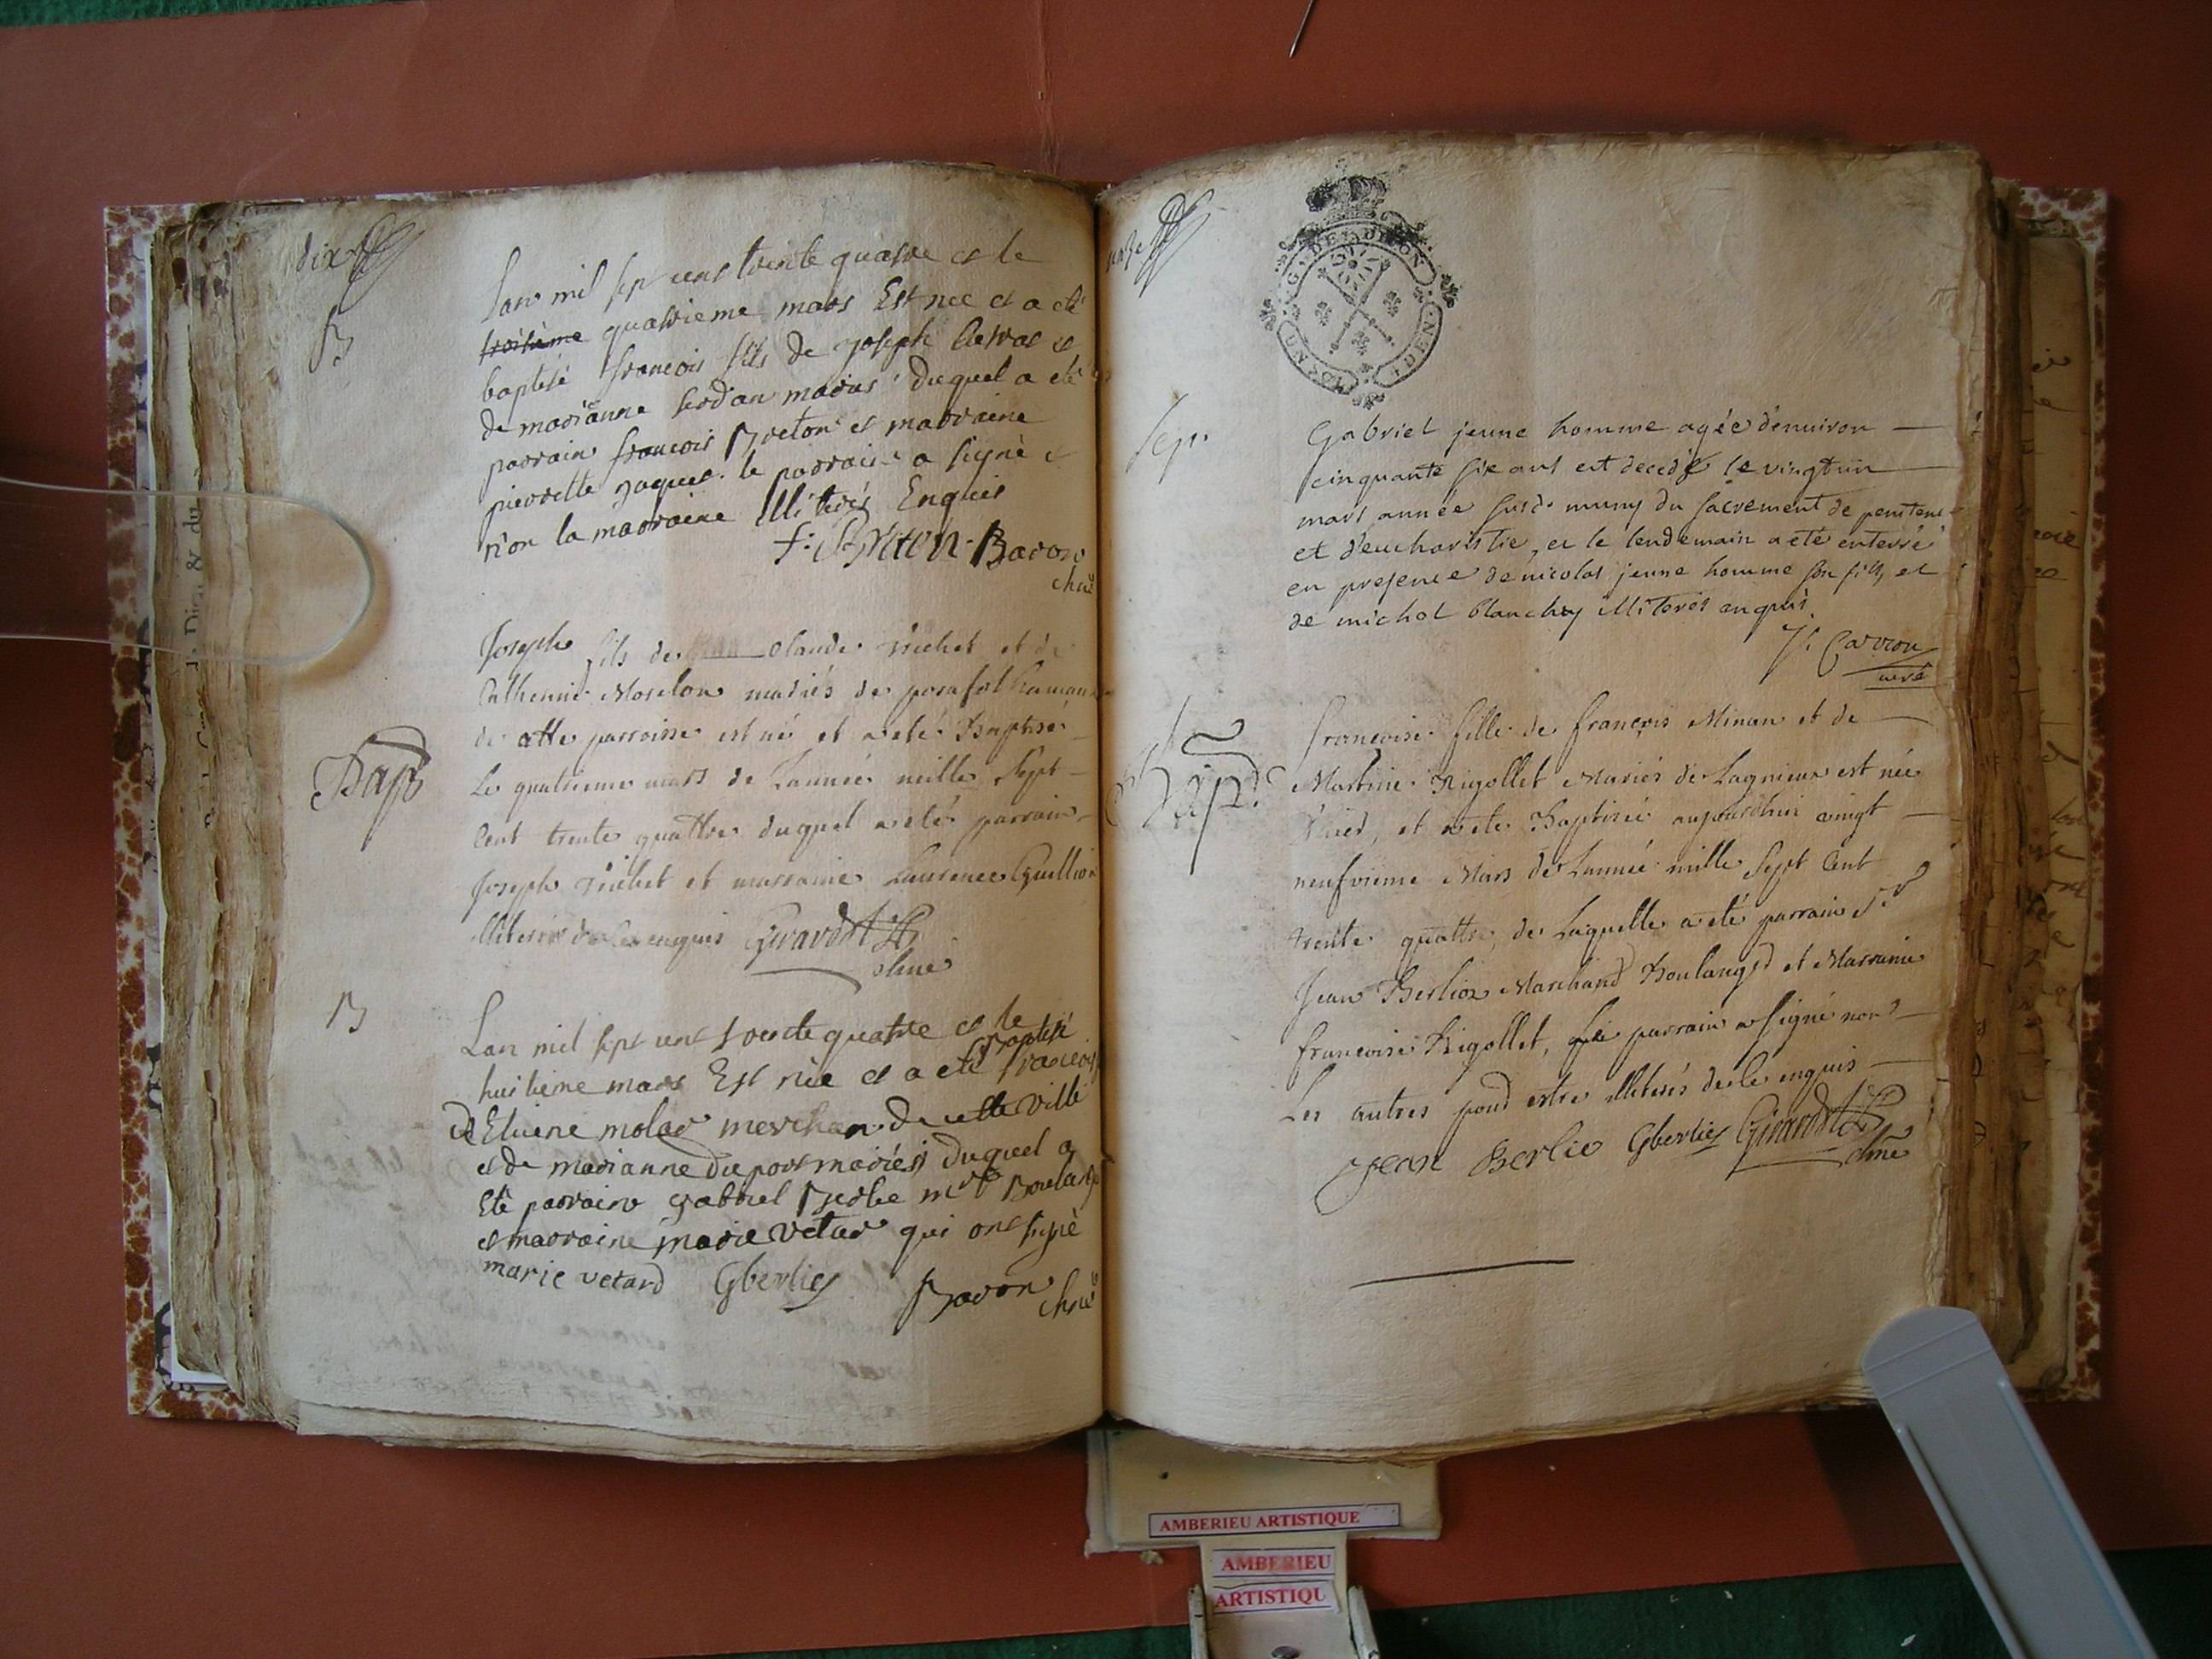 dix
B
Lan mil sept cens trente quatre et le
troisieme quatrieme mars Est nee et a eté
baptisé francois fils de joseph
de marianne jordan mariés duquel a eté
parrain francois Breton et marraine
pierrette jaques le parrain a signè et
non la marraine illiterés Enquis
f: Breton Baron
Joseph fils de Claude Trichet et de
Catherine mariés de
de cette parroisse est né et a eté Baptisé
Bapt
Le quatrieme mars de Lannée mille Sept
Cent trente quattre duquel a eté parrain
Joseph Trichet et marraine Laurence Guillion
illiterés de ce enquis Girardet
B
Lan mil sept cens trente quatre et le
huitieme mars Est née et a eté Baptisé francois
d Etiene molar merchan de cette ville
et de marianne duport mariés duquel a
Eté parrain gabriel Berlie md Boulange
et marraine marie vetar qui ont signè
marie vetard Gberlie Baron
onze
G. DE DIJON
UN SOL
DEN
Sep.
Gabriel jeune homme agée d'enuiron
cinquante six ans est decedé le vingtun
mars année susd. muny du sacrement de penitence
et d'eucharistie, et le lendemain a eté enterré
en presence de nicolas jeune homme son fils, et
de michel blanchy illiterés enquis
J. Carron
curé
francoise fille de françois Minan et de
Martine Rigollet Mariés de Lagnieux est née
Bapt.
hier, et a eté Baptisée aujourdhui vingt
neufvieme Mars de Lannée mille Sept Cent
trente quattre, de Laquelle a eté parrain Sr
Jean Berlioz Marchand Boulanger et Marraine
francoise Rigollet, Le parrain a signé non
Les autres pour estre illiterés de ce enquis
Jean Berlie Gberlie Girardet
AMBERIEU ARTISTIQUE
AMBERIEU
ARTISTIQU